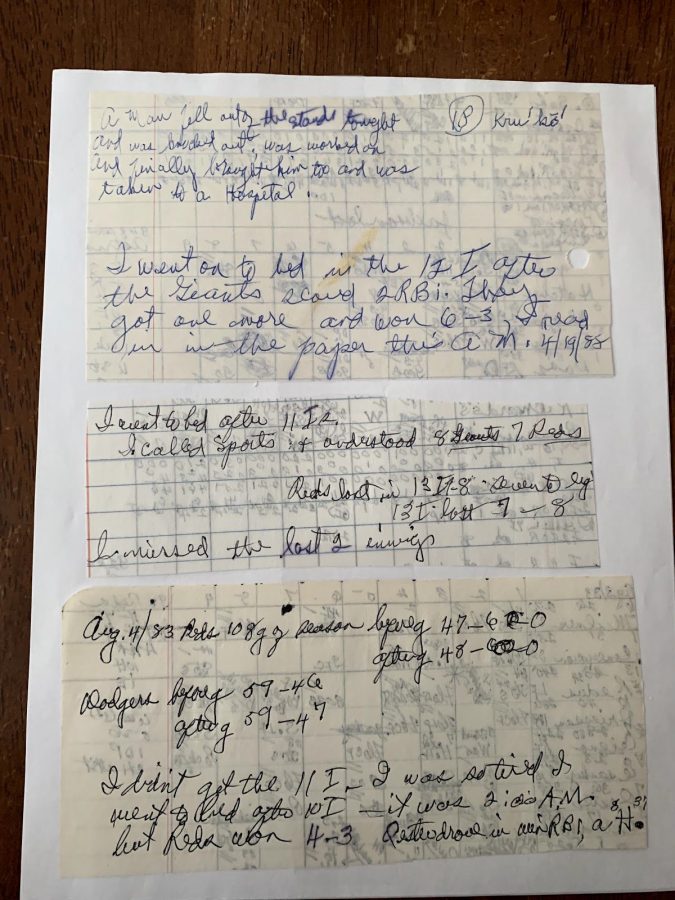 A Man fell out of the stands tonight
and was knocked out, was worked on
and finally brought him too and was
taken to a Hospital.
18 Kru' kō'
I went on to bed in the 12 I, after
the Giants scored 2 RBi. They
got one more and won 6-3, I read
in in the paper this A.M. 4/19/88
I went to bed after 11 Is.
I called Sports & understood 8 Giants 7 Reds
Reds lost in 13 I-8
13 I. lost 7 - 8
I missed the last 2 innings
Aug. 4/83 Reds 108 g of season before g 47-60
after g 48-60
Dodgers before g 59-46
after g 59-47
I didn't get the 11 I - I was so tired I
went to bed after 10 I - it was 2:00 A.M.
but Reds won 4-3 drove in win RBI, a H.